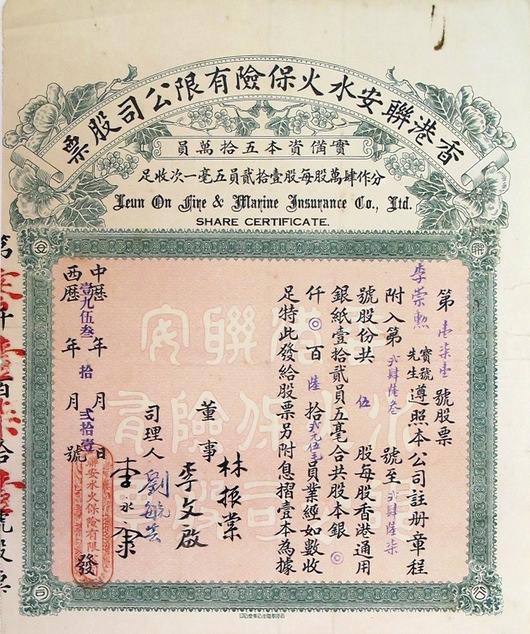 香港聯安水火保險有限公司股票
實備資本五拾萬員
分作肆萬股每股壹拾貳員五毫一次收足
Leun On Fire & Marine Insurance Co., Ltd.
SHARE CERTIFICATE.
聯
安
公
司
第壹柒壹號股票
李崇勲寶號先生遵照本公司註册章程
附入第弍肆陸叁號至弍肆陸柒
號股份共伍股每股香港通用
銀紙壹拾貳員五毫合共股本銀◎
仟◎百陸拾弍元伍毛員業經如數收
足特此發給股票另附息摺壹本為據
董事林振業
李文啟
司理人劉
李永
中曆年月日
西歷壹九伍叁年拾月弍拾壹號發
聯安水火保險有限
第仟百拾號股票
香港聯安
水火保險有限
公司股票